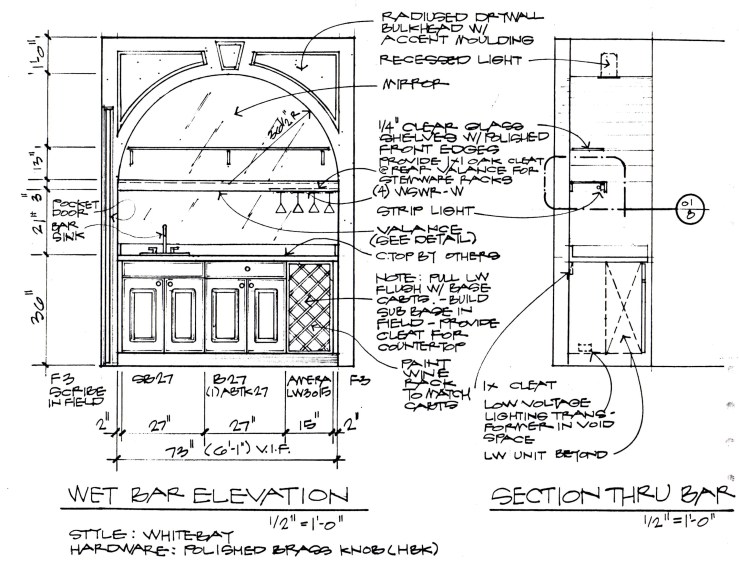 RADIUSED DRYWALL
BULKHEAD W/
ACCENT MOULDING
RECESSED LIGHT
MIRROR
1/4" CLEAR GLASS
SHELVES W/ POLISHED
FRONT EDGES
PROVIDE 1x1 OAK CLEAT
@ REAR VALANCE FOR
STEMWARE RACKS
(4) WGWR-W
STRIP LIGHT
VALANCE
(SEE DETAIL)
C.TOP BY OTHERS
NOTE: PULL LW
FLUSH W/ BASE
CABTS. - BUILD
SUB BASE IN
FIELD - PROVIDE
CLEAT FOR
COUNTERTOP
PAINT
WINE
RACK
TO MATCH
CABTS
1'-0"
13"
3"
21"
36"
36 1/2" R
POCKET
DOOR
BAR
SINK
F3
SCRIBE
IN FIELD
SB27
B27
(1) ABTK27
AMERA
LW3015
F3
2"
27"
27"
15"
2"
73" (6'-1") V.I.F.
WET BAR ELEVATION
1/2" = 1'-0"
STYLE: WHITEBAY
HARDWARE: POLISHED BRASS KNOB (HBK)
01
B
1x CLEAT
LOW VOLTAGE
LIGHTING TRANS-
FORMER IN VOID
SPACE
LW UNIT BEYOND
SECTION THRU BAR
1/2" = 1'-0"